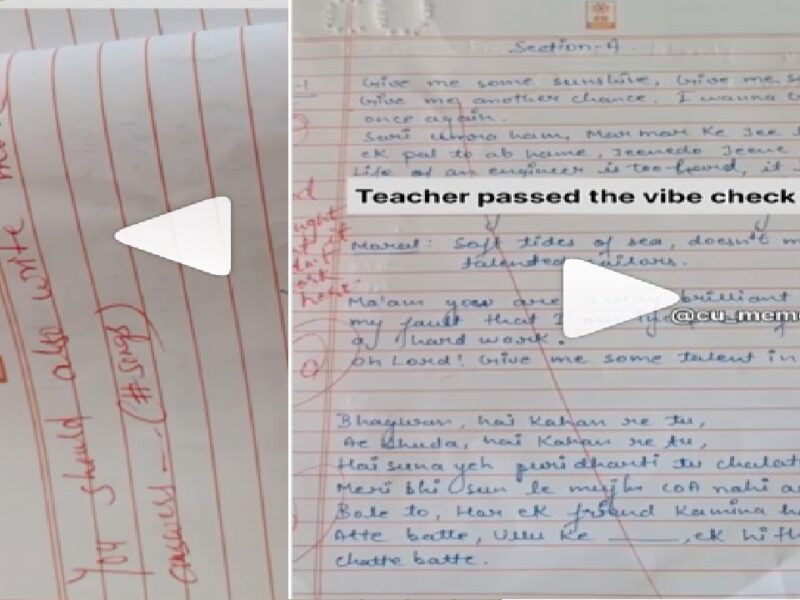 You should also write more
answers --- (# songs)
Section-A.
Give me some sunshine, Give me so
Give me another chance, I wanna G
once again.
Sari umra ham, Mar mar Ke Jee
ek pal to ab hame, Jeenedo Jeene
Life of an engineer is too hard, it
Teacher passed the vibe check
Moral: Soft tides of sea, doesn't m
talented sailors.
Ma'am you are a very brilliant
@cu_meme
my fault that I
hard work.
oh Lord! Give me some talent in
Bhagwan, hai Kahan re tu,
Ae Khuda, hai Kahan re tu,
Hai suna yeh puri dharti tu chalat
Meri bhi Sun le mujhe COA nahi a
Bole to, Har ek friend Kamina h
Atte batte, Ullu Ke ____, ek hi th
chatte batte.